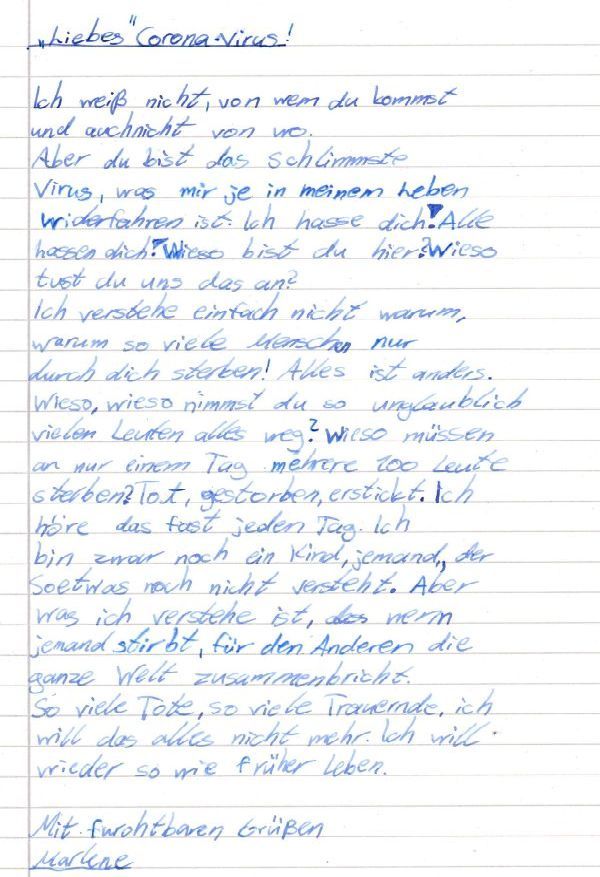 „Liebes" Corona-Virus!
Ich weiß nicht, von wem du kommst
und auchnicht von wo.
Aber du bist das Schlimmste
Virus, was mir je in meinem Leben
widerfahren ist. Ich hasse dich! Alle
hassen dich! Wieso bist du hier? Wieso
tust du uns das an?
Ich verstehe einfach nicht warum,
warum so viele Menschen nur
durch dich sterben! Alles ist anders.
Wieso, wieso nimmst du so unglaublich
vielen Leuten alles weg? Wieso müssen
an nur einem Tag mehrere 100 Leute
sterben? Tot, gestorben, erstickt. Ich
höre das fast jeden Tag. Ich
bin zwar noch ein Kind, jemand, der
Soetwas noch nicht versteht. Aber
was ich verstehe ist, wenn
jemand stirbt, für den Anderen die
ganze Welt zusammenbricht.
So viele Tote, so viele Trauernde, ich
will das alles nicht mehr. Ich will
wieder so wie früher leben.
Mit furchtbaren Grüßen
Marlene